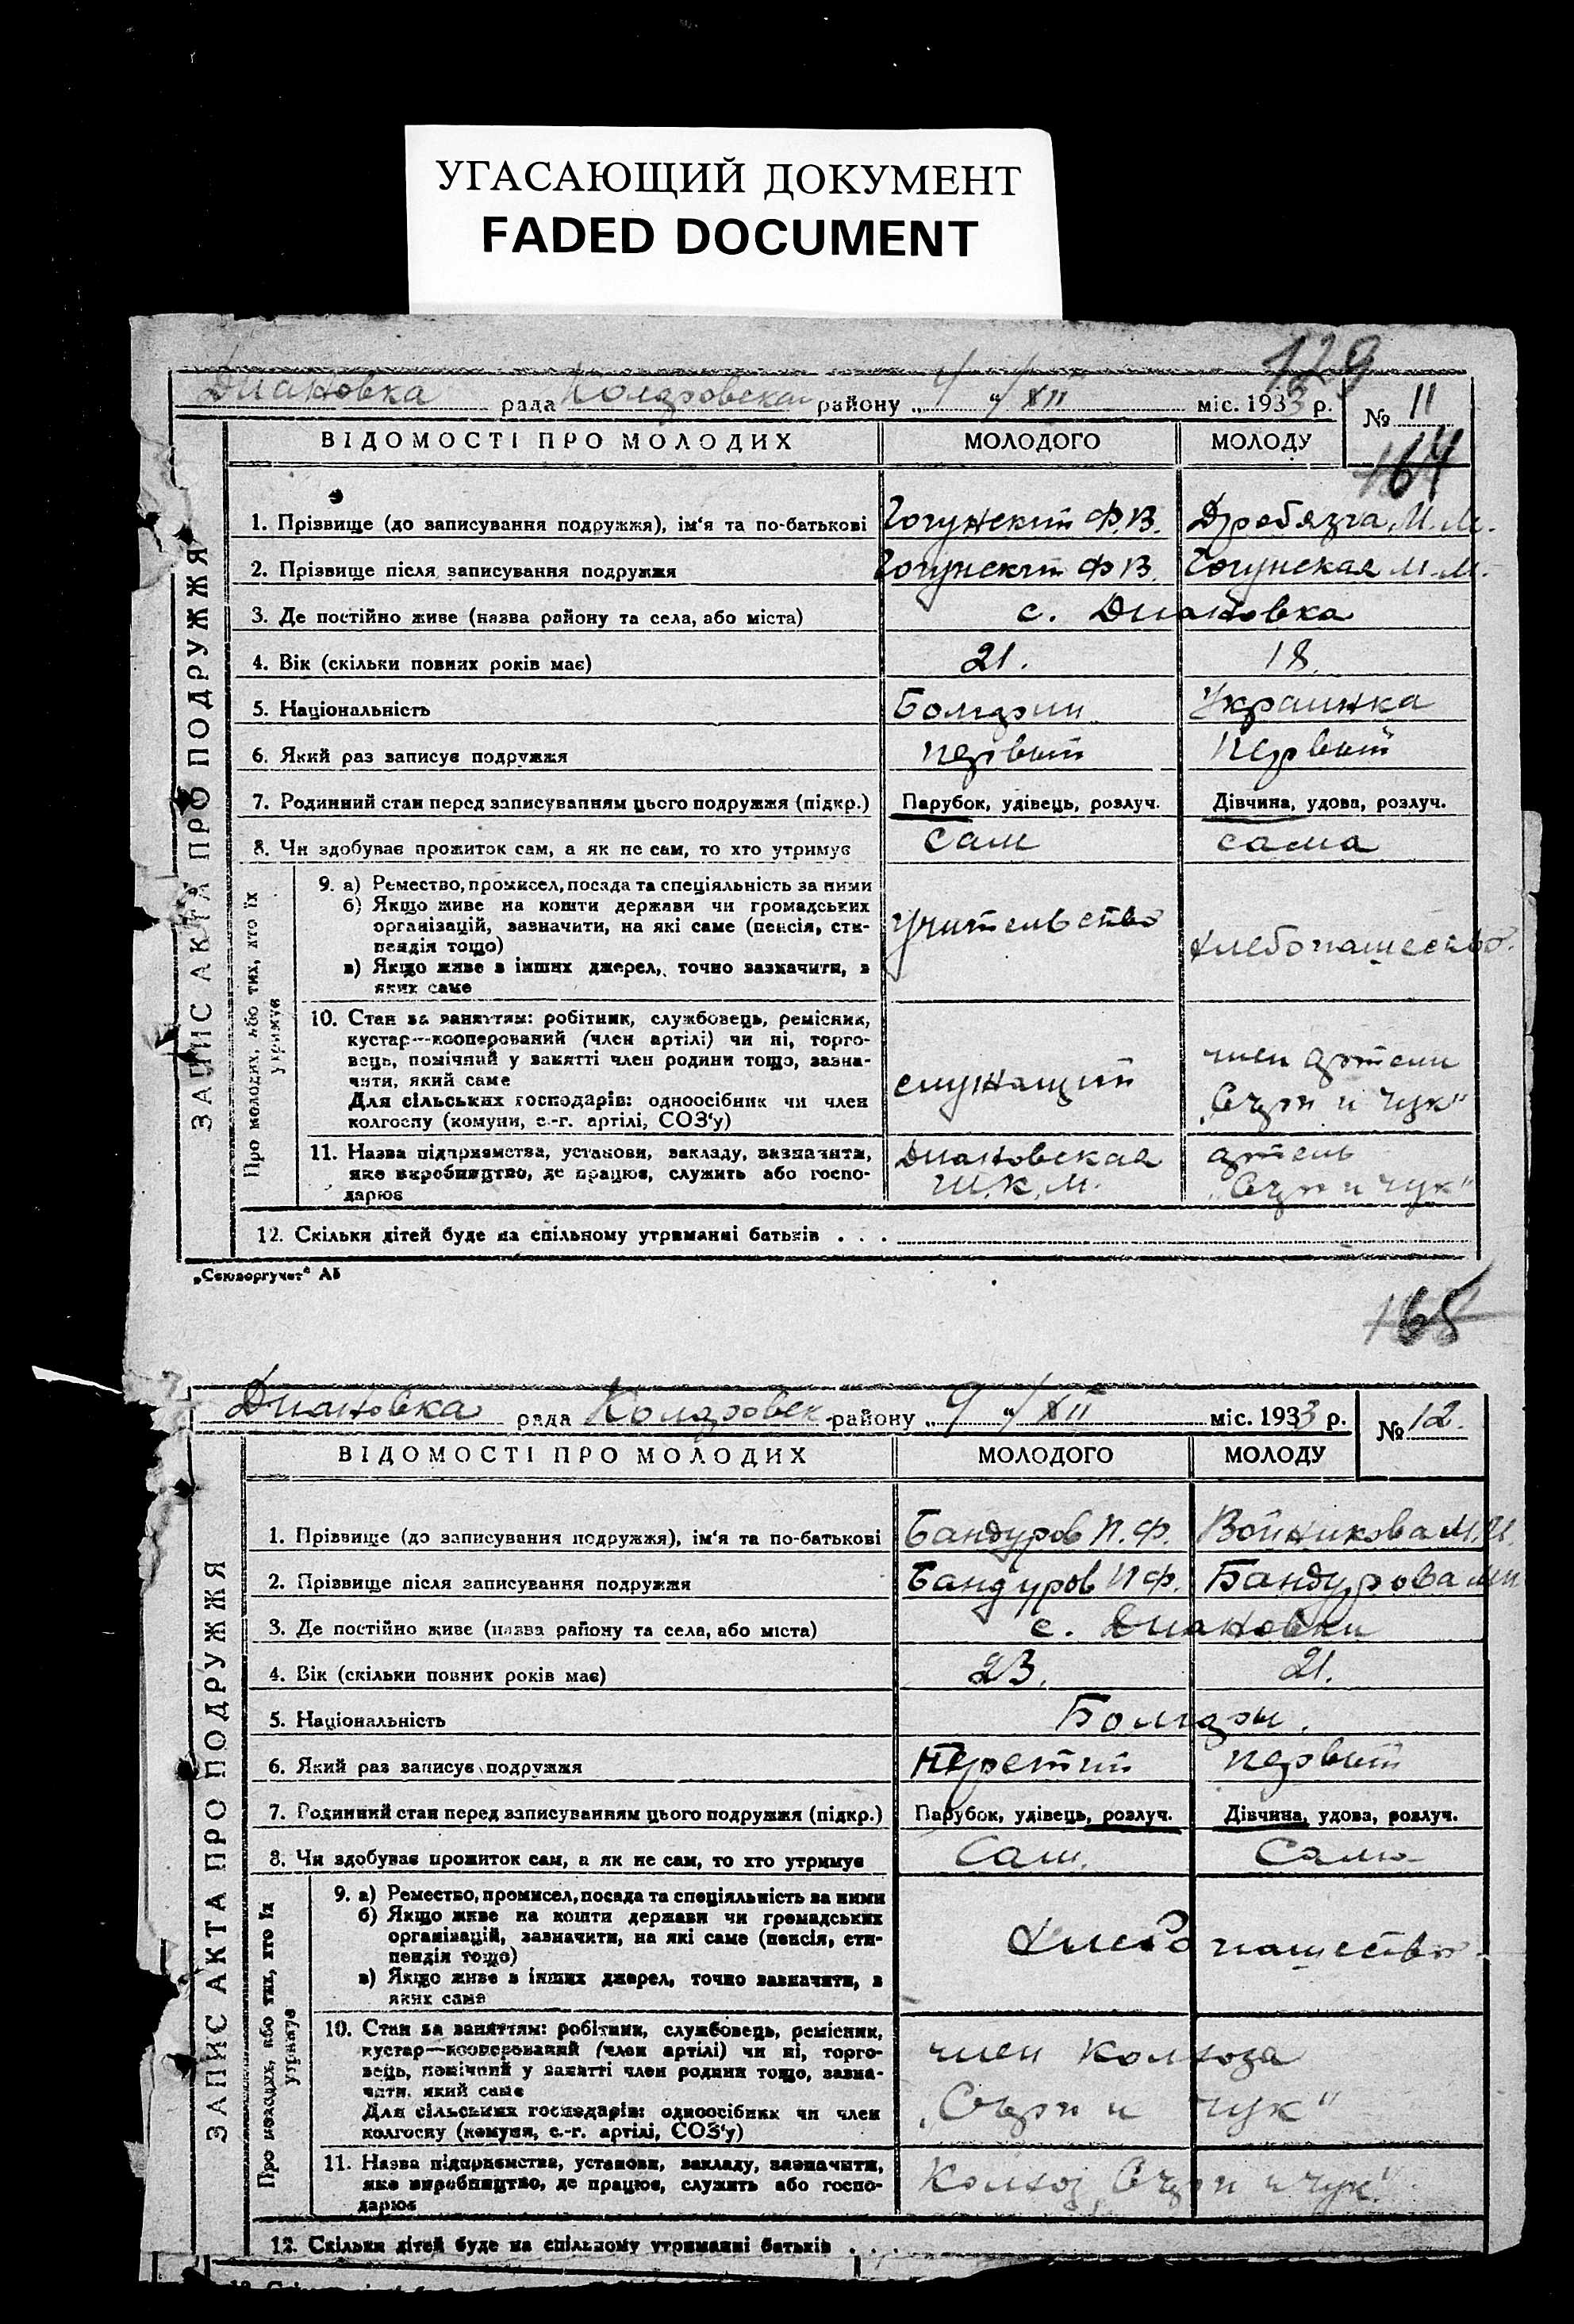 УГАСАЮЩИЙ ДОКУМЕНТ
FADED DOCUMENT
129
Диановка рада Коларовская району „ 4 “ XII міс. 1933 р. № 11
164
ВІДОМОСТІ ПРО МОЛОДИХ МОЛОДОГО МОЛОДУ
ЗАПИС АКТА ПРО ПОДРУЖЖЯ
1. Прізвище (до записування подружжя), ім'я та по-батькові Ф.В. Дробязга М.М.
2. Прізвище після записування подружжя Ф.В. М.М.
3. Де постійно живе (назва району та села, або міста) с. Диановка
4. Вік (скільки повних років має) 21. 18.
5. Національність Болгарин Украинка
6. Який раз записує подружжя первый первый
7. Родинний стан перед записуванням цього подружжя (підкр.) Парубок, удівець, розлуч. Дівчина, удова, розлуч.
8. Чи здобуває прожиток сам, а як не сам, то хто утримує сам сама
Про молодих, або тих, хто їх утримує
9. а) Ремество, промисел, посада та спеціяльність за ними
б) Якщо живе на кошти держави чи громадських
організацій, зазначити, на які саме (пенсія, сти-
пендія тощо)
в) Якщо живе з інших джерел, точно зазначити, з
яких саме
учительство хлебопашество.
10. Стан за заняттям: робітник, службовець, ремісник,
кустар—кооперований (член артілі) чи ні, торго-
вець, помічний у занятті член родини тощо, зазна-
чити, який саме
Для сільських господарів: одноосібник чи член
колгоспу (комуни, с.-г. артілі, СОЗ'у)
служащий член артели
„Серп и
11. Назва підприємства, установи, закладу, зазначити,
яке виробництво, де працює, служить або госпо-
дарює
Диановская артель
Ш.К.М. „Серп и
12. Скільки дітей буде на спільному утриманні батьків . . .
„Союзоргучет“ АБ
165
Диановка рада Коларовск району „ 9 “ XII міс. 1933 р. № 12.
ВІДОМОСТІ ПРО МОЛОДИХ МОЛОДОГО МОЛОДУ
ЗАПИС АКТА ПРО ПОДРУЖЖЯ
1. Прізвище (до записування подружжя), ім'я та по-батькові Бандуров П.Ф. Войникова М.И.
2. Прізвище після записування подружжя Бандуров П.Ф. Бандурова М.И.
3. Де постійно живе (назва району та села, або міста) с. Диановки
4. Вік (скільки повних років має) 23. 21.
5. Національність Болгары.
6. Який раз записує подружжя третий первый
7. Родинний стан перед записуванням цього подружжя (підкр.) Парубок, удівець, розлуч. Дівчина, удова, розлуч.
8. Чи здобуває прожиток сам, а як не сам, то хто утримує Сам. Сама
Про молодих, або тих, хто їх утримує
9. а) Ремество, промисел, посада та спеціяльність за ними
б) Якщо живе на кошти держави чи громадських
організацій, зазначити, на які саме (пенсія, сти-
пендія тощо)
в) Якщо живе з інших джерел, точно зазначити, з
яких саме
хлебопашество
10. Стан за заняттям: робітник, службовець, ремісник,
кустар—кооперований (член артілі) чи ні, торго-
вець, помічний у занятті член родини тощо, зазна-
чити, який саме
Для сільських господарів: одноосібник чи член
колгоспу (комуни, с.-г. артілі, СОЗ'у)
член колхоза
„Серп и
11. Назва підприємства, установи, закладу, зазначити,
яке виробництво, де працює, служить або госпо-
дарює
Колхоз „Серп и
12. Скільки дітей буде на спільному утриманні батьків . . .